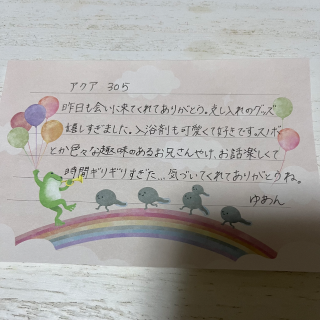 アクア 305
昨日も会いに来てくれてありがとう。差し入れのグッズ
嬉しすぎました。入浴剤も可愛くて好きです。スノボ
とか色々な趣味のあるお兄さんやけ、お話楽しくて
時間ギリギリすぎた...気づいてくれてありがとうね。
ゆあん